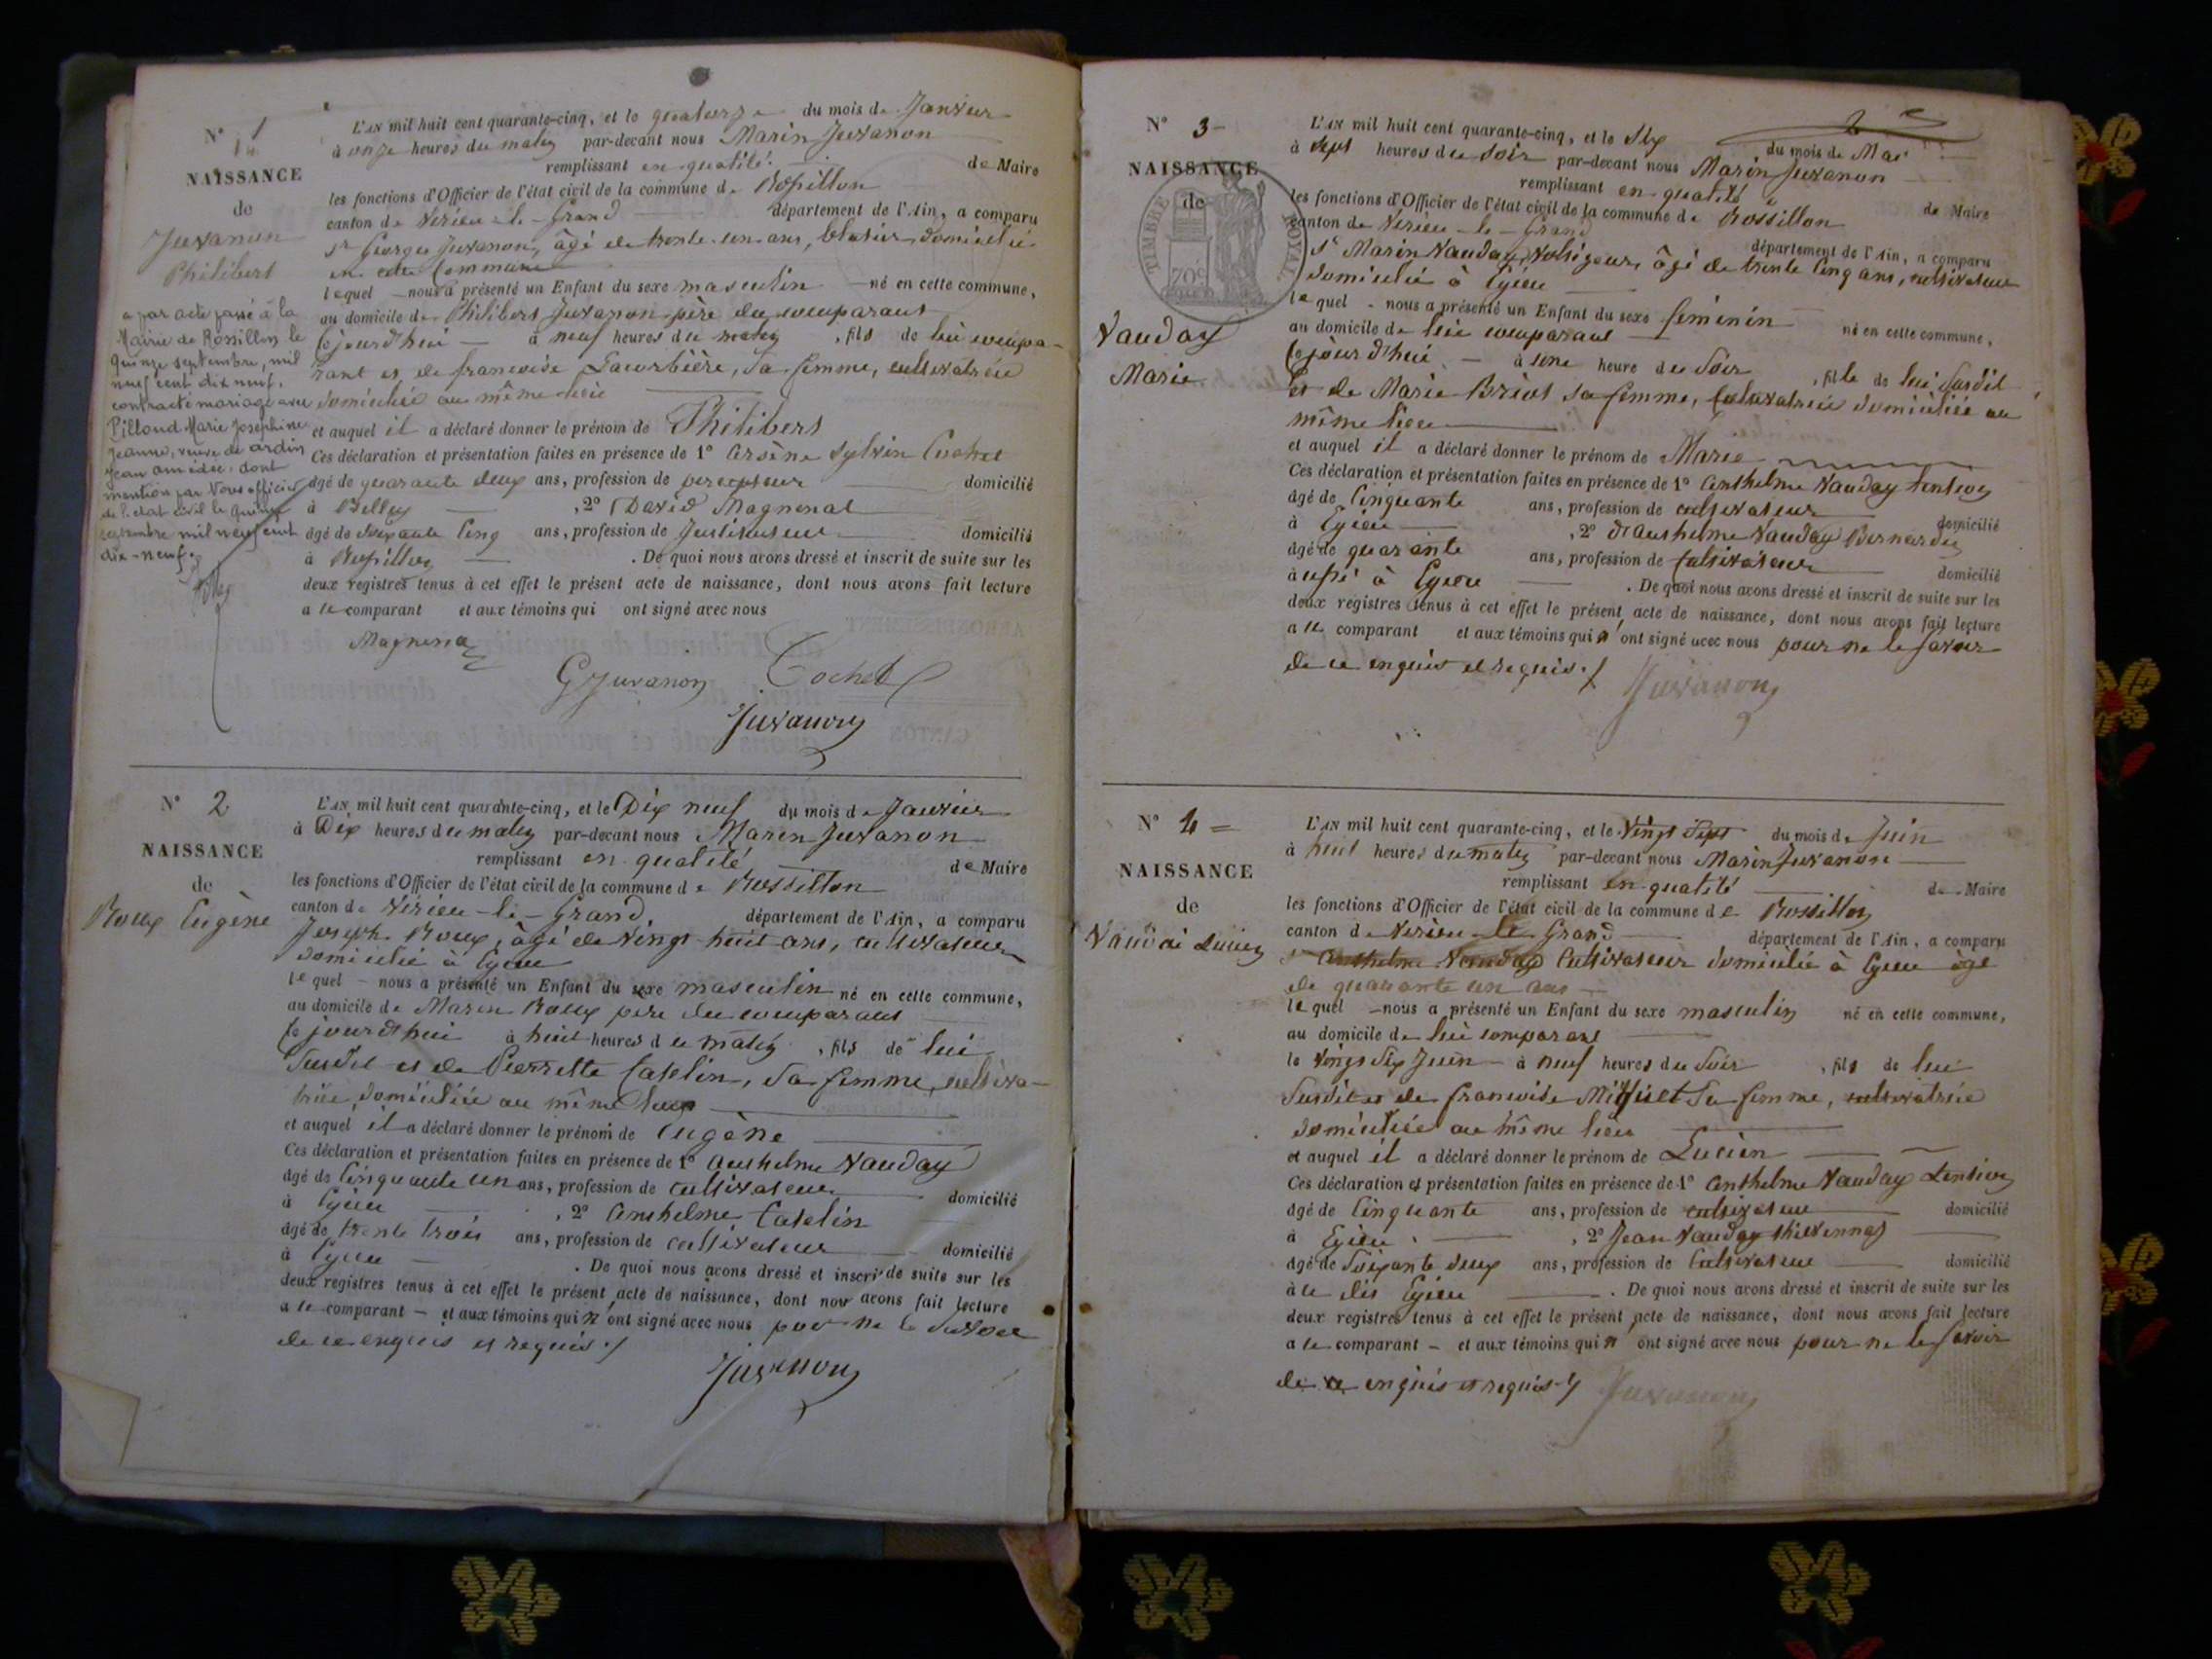 N° 1
NAISSANCE
de
Juvanon
Philibert
a par acte passé à la
Mairie de Rossillon le
quinze septembre, mil
neuf cent dix neuf,
contracté mariage avec
Pilloud Marie Josephine
Jeanne, veuve de ardin
Jean amédée. dont
mention par Nous officier
de l'état civil le quinze
septembre mil neuf cent
dix-neuf.
L'AN mil huit cent quarante-cinq, et le quatorze du mois de Janvier
à onze heures du matin par-devant nous Marin Juvanon
remplissant en qualité de Maire
les fonctions d'Officier de l'état civil de la commune de Rossillon
canton de Virieu-le-Grand département de l'Ain, a comparu
Sr Georges Juvanon, âgé de trente-un ans, domicilié
en cette Commune
lequel nous a présenté un Enfant du sexe masculin né en cette commune,
au domicile de Philibert Juvanon père du comparant
ce jourd'hui à neuf heures du matin, fils de lui compa-
rant et de francoise Lacorbière, sa femme, cultivatrice
domiciliée au même lieu
et auquel il a déclaré donner le prénom de Philibert
Ces déclaration et présentation faites en présence de 1° Arsène Sylvin Cochet
âgé de quarante deux ans, profession de percepteur domicilié
à Belley, 2° David Magnenat
âgé de soixante cinq ans, profession de Instituteur domicilié
à Rossillon. De quoi nous avons dressé et inscrit de suite sur les
deux registres tenus à cet effet le présent acte de naissance, dont nous avons fait lecture
a le comparant et aux témoins qui ont signé avec nous
Magnenat
G Juvanon Cochet
Juvanon
N° 2
NAISSANCE
de
Roux Eugène
L'AN mil huit cent quarante-cinq, et le Dix neuf du mois de Janvier
à Dix heures du matin par-devant nous Marin Juvanon
remplissant en qualité de Maire
les fonctions d'Officier de l'état civil de la commune de Rossillon
canton de Virieu-le-Grand, département de l'Ain, a comparu
Joseph Roux, âgé de vingt-huit ans, cultivateur
domicilié à Egieu
lequel - nous a présenté un Enfant du sexe masculin né en cette commune,
au domicile de Marin Roux père du comparant
ce jourd'hui à huit heures du matin, fils de lui
susdit et de Pierrette Catelin, sa femme, cultiva-
trice, domiciliée au même lieu
et auquel il a déclaré donner le prénom de Eugène
Ces déclaration et présentation faites en présence de 1° Anthelme Vauday
âgé de Cinquante un ans, profession de cultivateur domicilié
à Egieu, 2° Anthelme Catelin
âgé de trente trois ans, profession de cultivateur domicilié
à Egieu. De quoi nous avons dressé et inscrit de suite sur les
deux registres tenus à cet effet le présent acte de naissance, dont nous avons fait lecture
a le comparant - et aux témoins qui n'ont signé avec nous pour ne le savoir
de ce enquis et requis ./
Juvanon
N° 3
NAISSANCE
de
TIMBRE ROYAL
70c
Vauday
Marie
L'AN mil huit cent quarante-cinq, et le Six du mois de Mai
à sept heures du soir par-devant nous Marin Juvanon
remplissant en qualité de Maire
les fonctions d'Officier de l'état civil de la commune de Rossillon
canton de Virieu-le-Grand département de l'Ain, a comparu
Sr Marin Vauday Voltigeur, âgé de trente cinq ans, cultivateur
domicilié à Egieu
lequel - nous a présenté un Enfant du sexe féminin né en cette commune,
au domicile de lui comparant
ce jourd'hui - à une heure du soir, fille de lui susdit
et de Marie Briot sa femme, Cultivatrice domiciliée au
même lieu
et auquel il a déclaré donner le prénom de Marie
Ces déclaration et présentation faites en présence de 1° Anthelme Vauday
âgé de Cinquante ans, profession de cultivateur domicilié
à Egieu, 2° d'Anthelme Vauday Bernardin
âgé de quarante ans, profession de Cultivateur domicilié
aussi à Egieu. De quoi nous avons dressé et inscrit de suite sur les
deux registres tenus à cet effet le présent acte de naissance, dont nous avons fait lecture
a le comparant et aux témoins qui n'ont signé avec nous pour ne le savoir
de ce enquis et requis ./ Juvanon
N° 4
NAISSANCE
de
Vaudai Lucien
L'AN mil huit cent quarante-cinq, et le Vingt Sept du mois de Juin
à huit heures du matin par-devant nous Marin Juvanon
remplissant en qualité de Maire
les fonctions d'Officier de l'état civil de la commune de Rossillon
canton de Virieu-le-Grand département de l'Ain, a comparu
Sr Anthelme Vauday Cultivateur domicilié à Egieu âgé
de quarante un ans
lequel - nous a présenté un Enfant du sexe masculin né en cette commune,
au domicile de lui comparant
le vingt six Juin à neuf heures du soir, fils de lui
susdit et de francoise sa femme, cultivatrice
domiciliée au même lieu
et auquel il a déclaré donner le prénom de Lucien
Ces déclaration et présentation faites en présence de 1° Anthelme Vauday
âgé de Cinquante ans, profession de cultivateur domicilié
à Egieu, 2° Jean Vauday
âgé de Soixante deux ans, profession de Cultivateur domicilié
à le dit Egieu. De quoi nous avons dressé et inscrit de suite sur les
deux registres tenus à cet effet le présent acte de naissance, dont nous avons fait lecture
a le comparant - et aux témoins qui n'ont signé avec nous pour ne le savoir
de ce enquis et requis ./ Juvanon